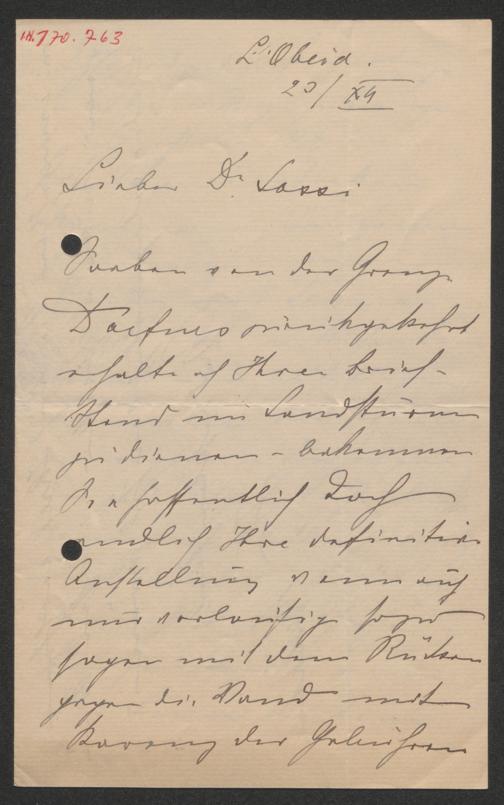 IN.170.763
L'Obeid.
23/XII
Lieber Dr Sassi
Soeben von der Grenze
Darfurs zurückgekehrt
erhalte ich Ihren Brief.
im Landsturm
zu dienen - bekommen
Sie hoffentlich doch
endlich Ihre definitive
Anstellung wenn auch
nur vorläufig sozu
sagen mit dem Rücken
gegen die Wand mit
der Gebühren